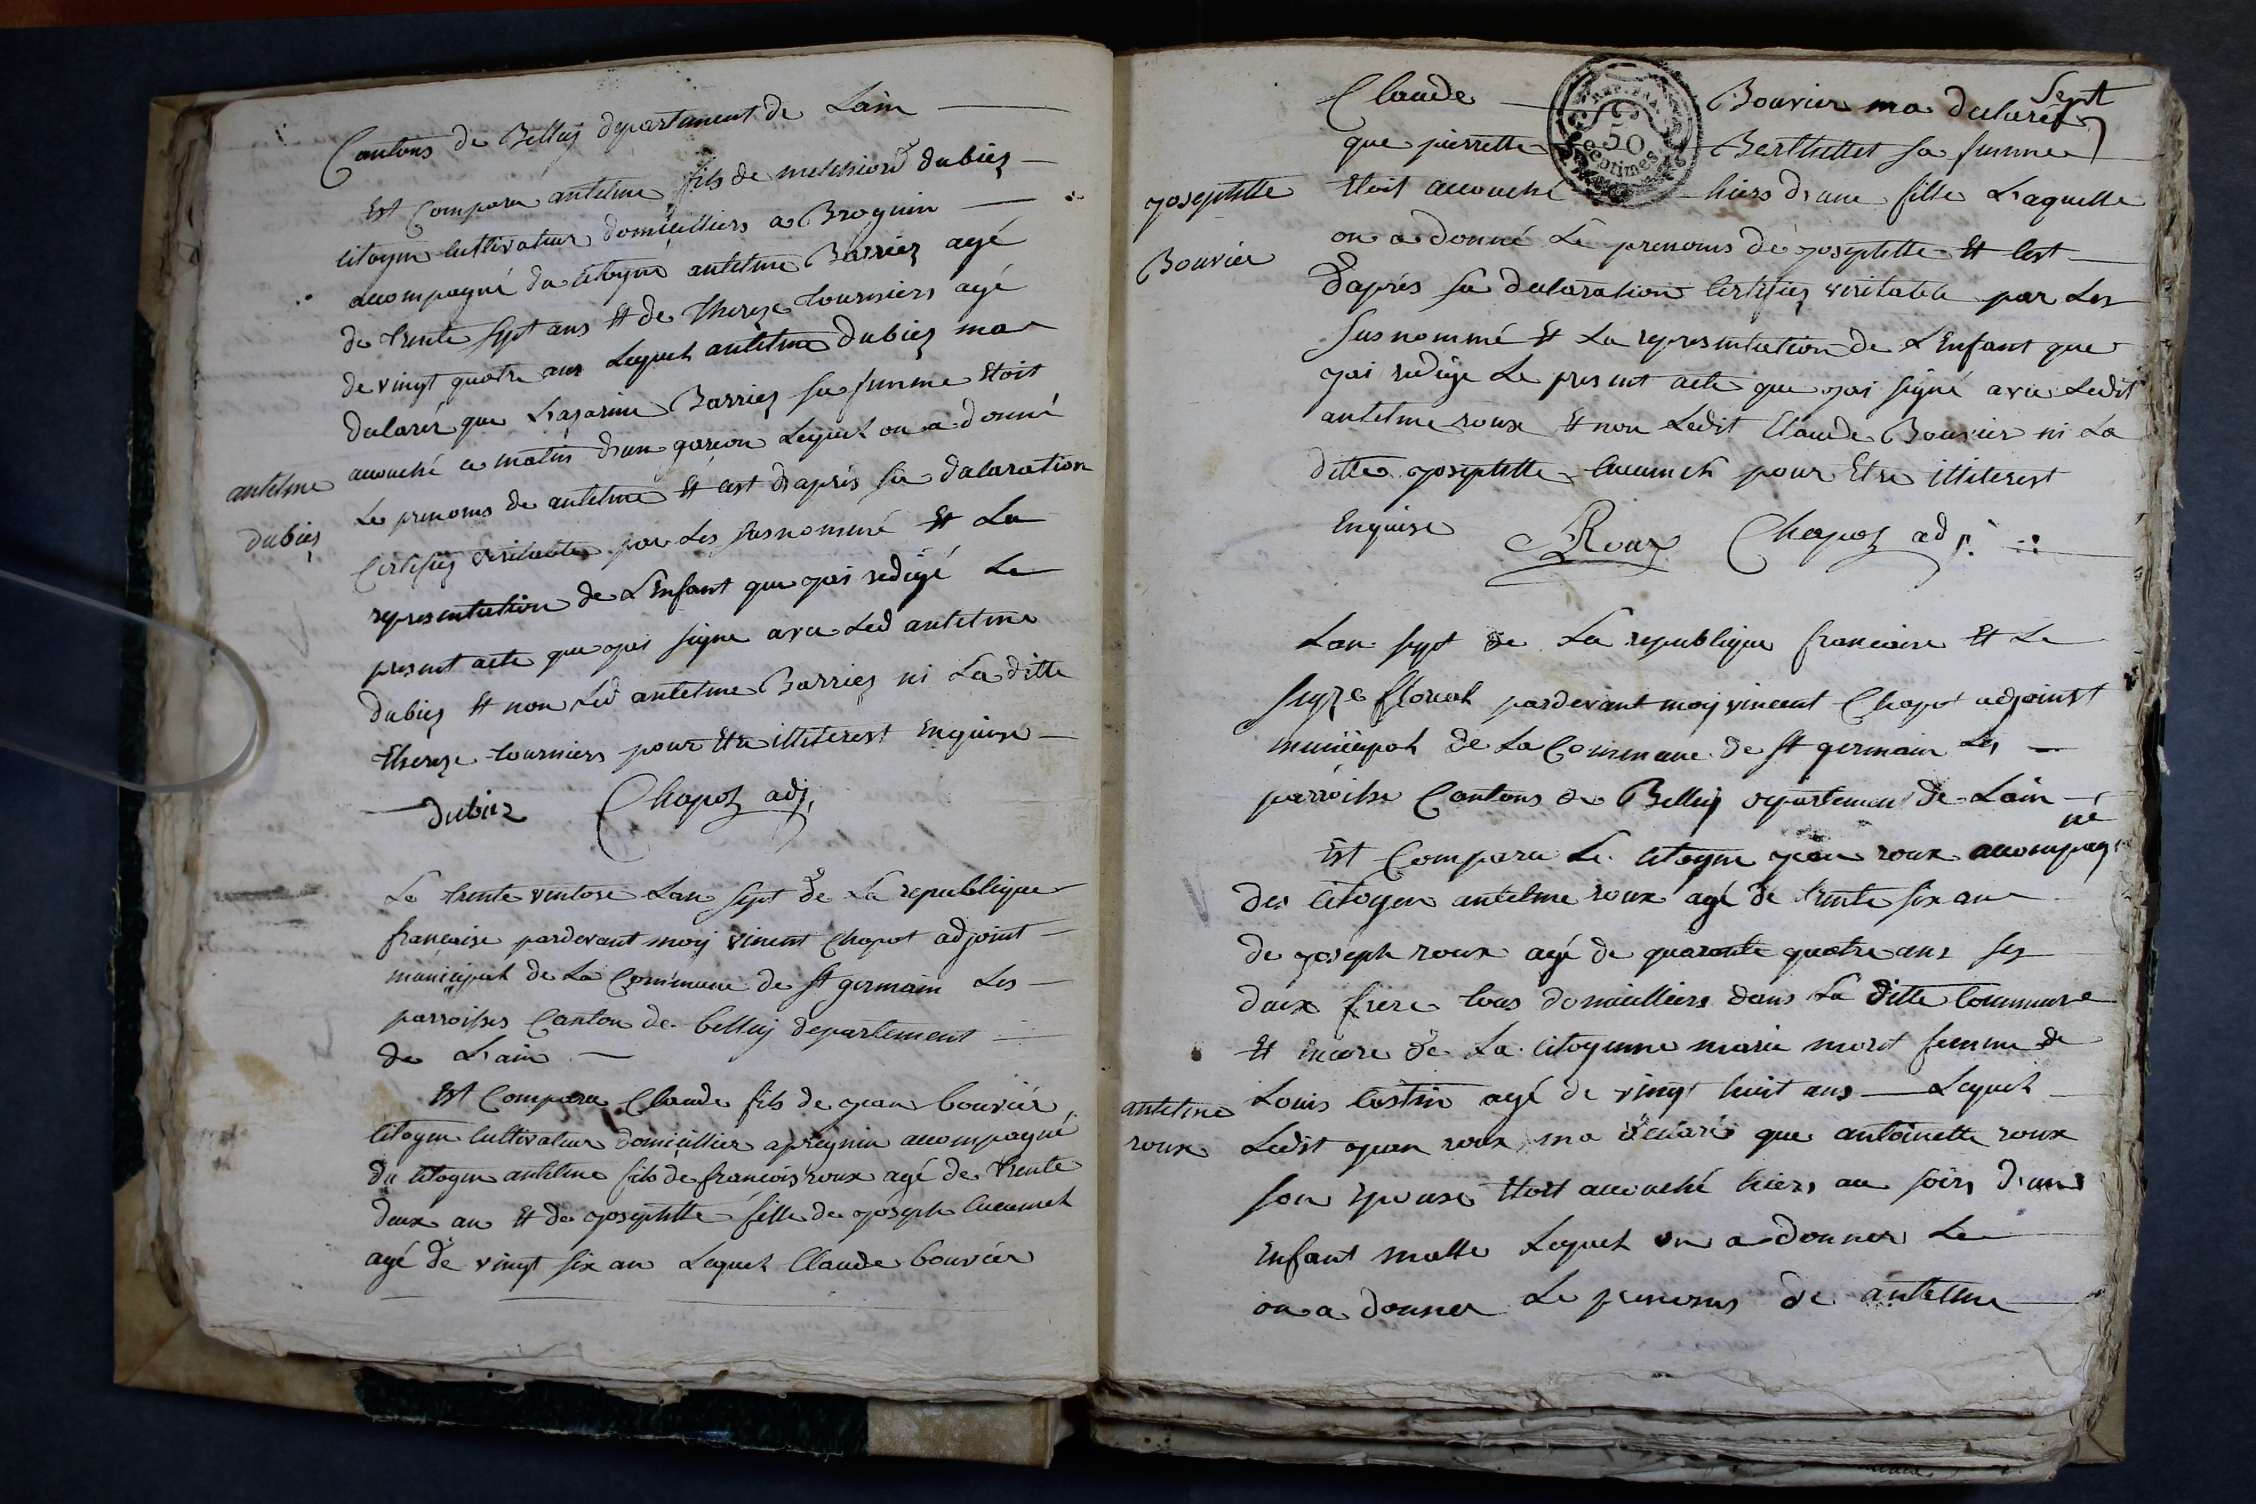 Cantons de Belley departement de Lain
Est Comparu antelme fils de melchiord dubiez
Citoyen Cultivateur domicilliers a Brognin
accompagné du Citoyen antelme Barriez agé
de trente sept ans Et de thereze tourniers agé
de vingt quatre ans Lequel antelme dubiez ma
dularér que Lazarine Barriez sa femme Etoit
accouché ce matin d'un garcon Lequel on a donné
antelme
dubiez
Le prenoms de antelme Et cest d'aprés sa dalaration
Certifiez veritable par Les susnommé Et La
representation de L'Enfant que jai redigé Le
present acte que jai signe avec Led antelme
dubiez Et non Led antelme Barriez ni La ditte
thereze tourniers pour Etre illiterest Enquise
dubiez Chapot adj
Le trente ventose Lan sept de La republique
française pardevant moy vincent Chapot adjoint
municipal de La Commune de st germain Les
parroisses Canton de belley departement
de L'ain
Est Comparu Claude fils de jean bouvier
Citoyen Cultivateur domicillier a preynin accompagné
du Citoyen antelme fils de francois roux agé de trente
deux an Et de josephtte fille de joseph Cucumel
agé de vingt six an Lequel Claude bouvier
Sept
Claude Bouvier ma dularér
que pierrette Berthellet sa femme
REP. FRA.
50
centimes
josephtte
Bouvier
Etoit accouché hiers d'une fille Laquelle
on a donné Le prenoms de josephtte Et Cest
d'aprés sa dularation Certifiez veritable par Les
susnommé Et La representation de L'Enfant que
jai redige Le present acte que jai signé avec Ledit
antelme roux Et non Ledit Claude Bouvier ni La
ditte josephtte Cucumel pour Etre illiterest
Enquise Roux Chapot adj
Lan sept de La republique francaise Et Le
seyze floreal pardevant moy vincent Chapot adjoinst
municipal de La Commune de st germain Les
parroisse Cantons de Belley departemen de Lain
Est Comparu Le Citoyen jean roux accompagné
des Citoyen antelme roux agé de trente six an
de joseph roux agé de quarante quatre ans ses
deux frere tous domicilliers dans La ditte Commune
Et Encore de La Citoyenne marie moret femme de
antelme
roux
Louis Costin agé de vingt huit ans Lequel
Ledit jean roux ma declaré que antoinette roux
son Epouse Etoit accouché hiers au soirs d'un
Enfant malle Lequel on a donner Le
on a donner Le prenoms de antelme